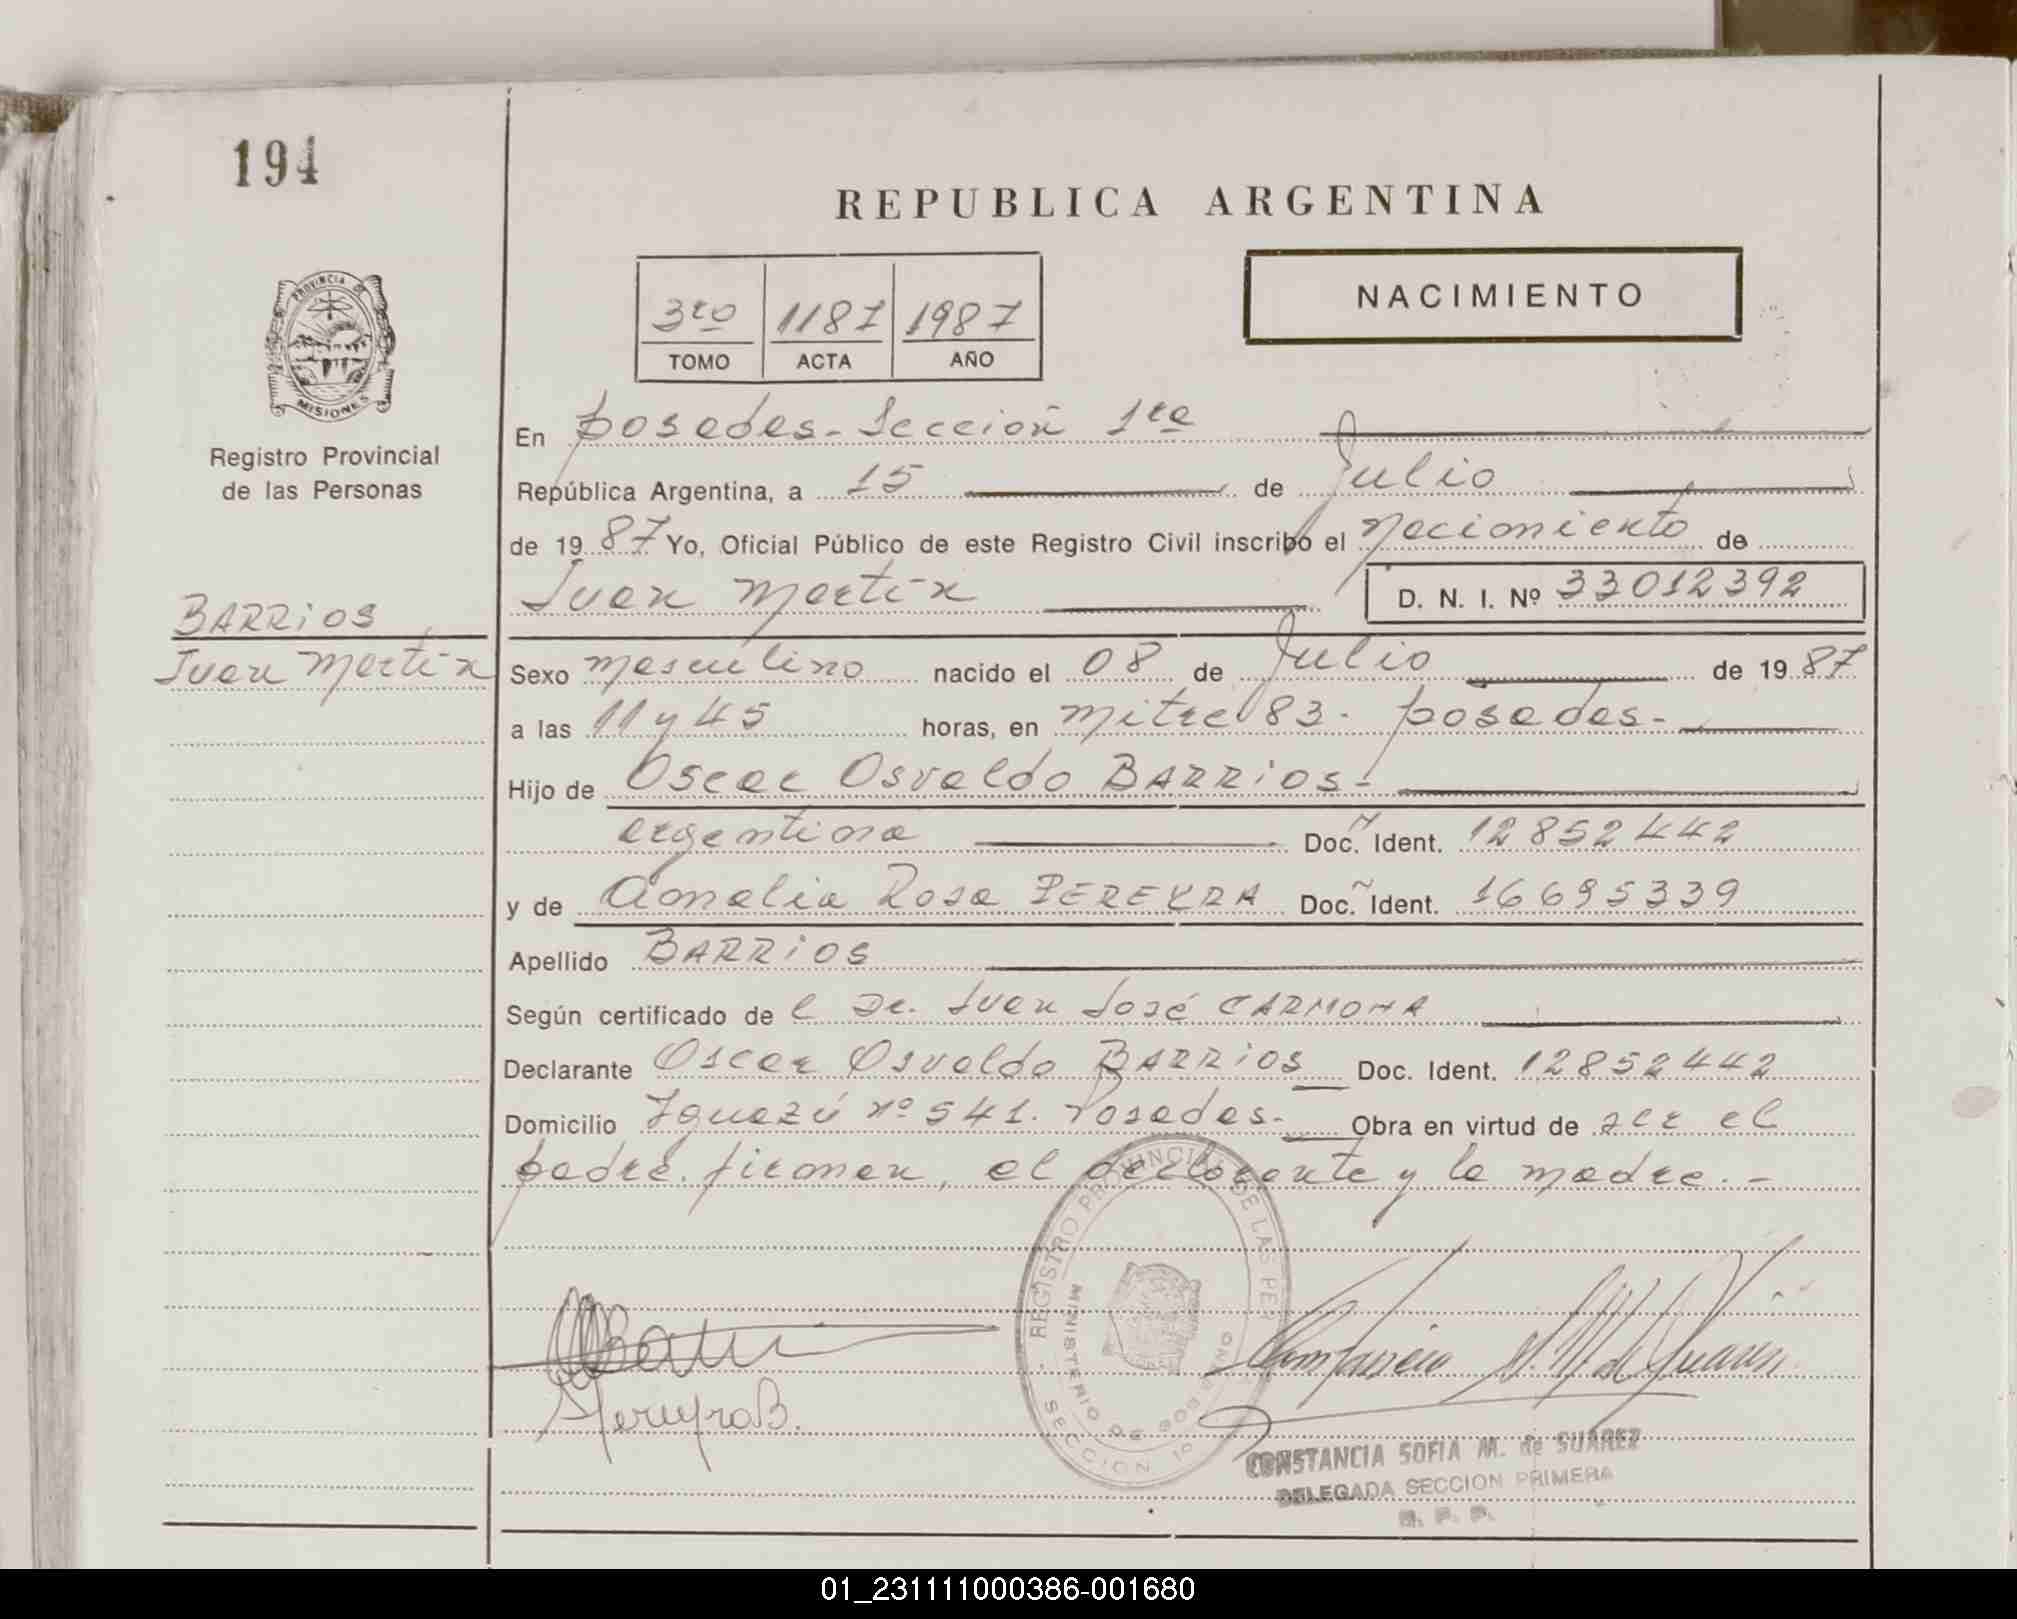 194
REPUBLICA ARGENTINA
NACIMIENTO
3ro 1187 1987
TOMO ACTA AÑO
PROVINCIA DE MISIONES
Registro Provincial
de las Personas
En posadas - Sección 1ra
República Argentina, a 15 de Julio
de 1987 Yo, Oficial Público de este Registro Civil inscribo el nacimiento de
Juan Martín D. N. I. Nº 33012392
BARRiOS
Juan Martín
Sexo masculino nacido el 08 de Julio de 1987
a las 11 y 45 horas, en mitre 83 - posadas -
Hijo de Oscar Osvaldo BARRiOS -
argentina Doc. Ident. 12852442
y de Amalia Rosa PEREYRA Doc. Ident. 16695339
Apellido BARRiOS
Según certificado de l Dr. Juan José CARMONA
Declarante Oscar Osvaldo BARRiOS Doc. Ident. 12852442
Domicilio Iguazú nº 541. Posadas - Obra en virtud de ser el
padre. firman, el declarante y la madre. -
REGISTRO PROVINCIAL DE LAS PER
MINISTERIO DE GOBIERNO
SECCION 1º
Pereyra B.
Constancia S. M. de Suarez
CONSTANCIA SOFIA M. de SUAREZ
DELEGADA SECCION PRIMERA
R. P. P.
01_231111000386-001680